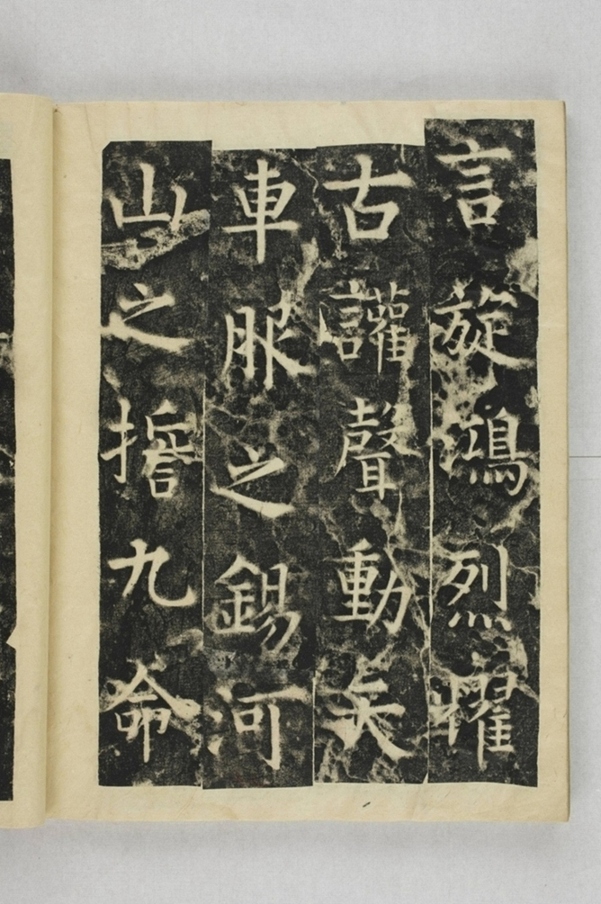 言旋鴻烈燿
古讙聲動矣
車服之錫河
山之誓九命